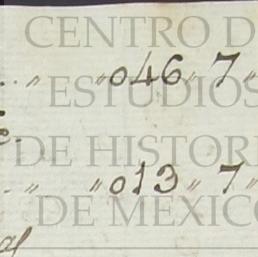 CENTRO D
.. " "046" 7"
ESTUDIOS
DE HISTORI
.. " "013" 7"
DE MEXICO